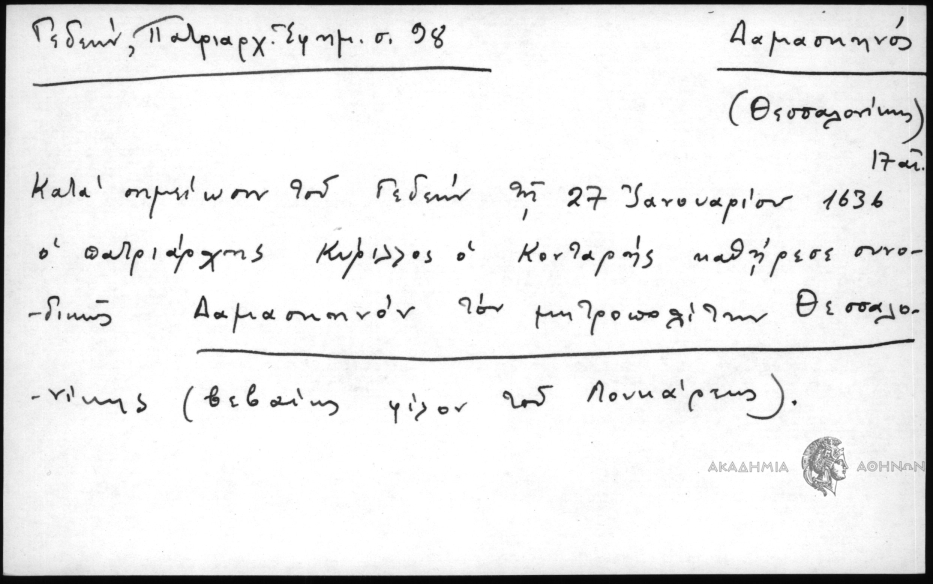 Γεδεών, Πατριαρχ. Ἐφημ. σ. 98
Δαμασκηνός
(Θεσσαλονίκης)
17 αἰ.
Κατά σημείωσιν τοῦ Γεδεών τῇ 27 Ἰανουαρίου 1636
ὁ πατριάρχης Κύριλλος ὁ Κονταρῆς καθῄρεσε συνο-
-δικῶς Δαμασκηνόν τόν μητροπολίτην Θεσσαλο-
-νίκης (βεβαίως φίλον τοῦ Λουκάρεως).
ΑΚΑΔΗΜΙΑ ΑΘΗΝΩΝ